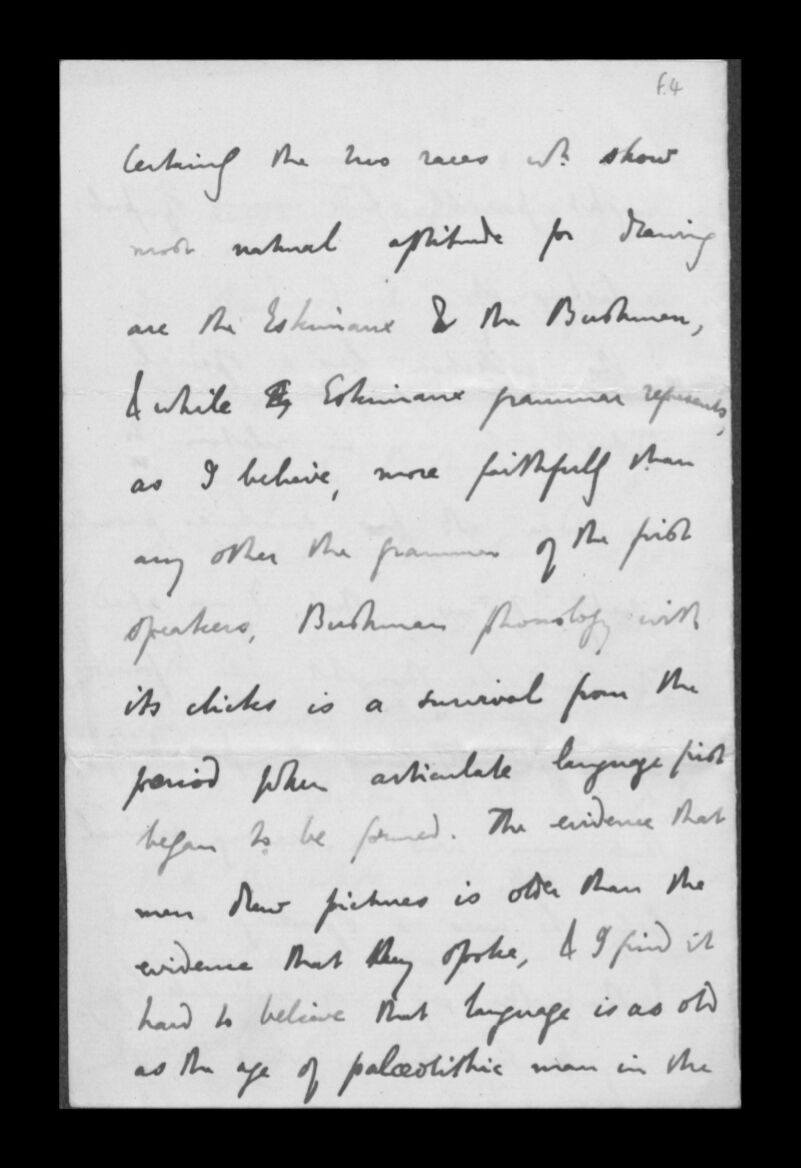 f.4
Certainly the two races wh. show
most natural aptitude for drawing
are the Eskimaux & the Bushmen,
& while Eskimaux grammar represents,
as I believe, more faithfully than
any other the grammar of the first
speakers, Bushman phonology with
its clicks is a survival from the
period when articulate language first
began to be formed. The evidence that
men drew pictures is older than the
evidence that they spoke, & I find it
hard to believe that language is as old
as the age of palæolithic man in the